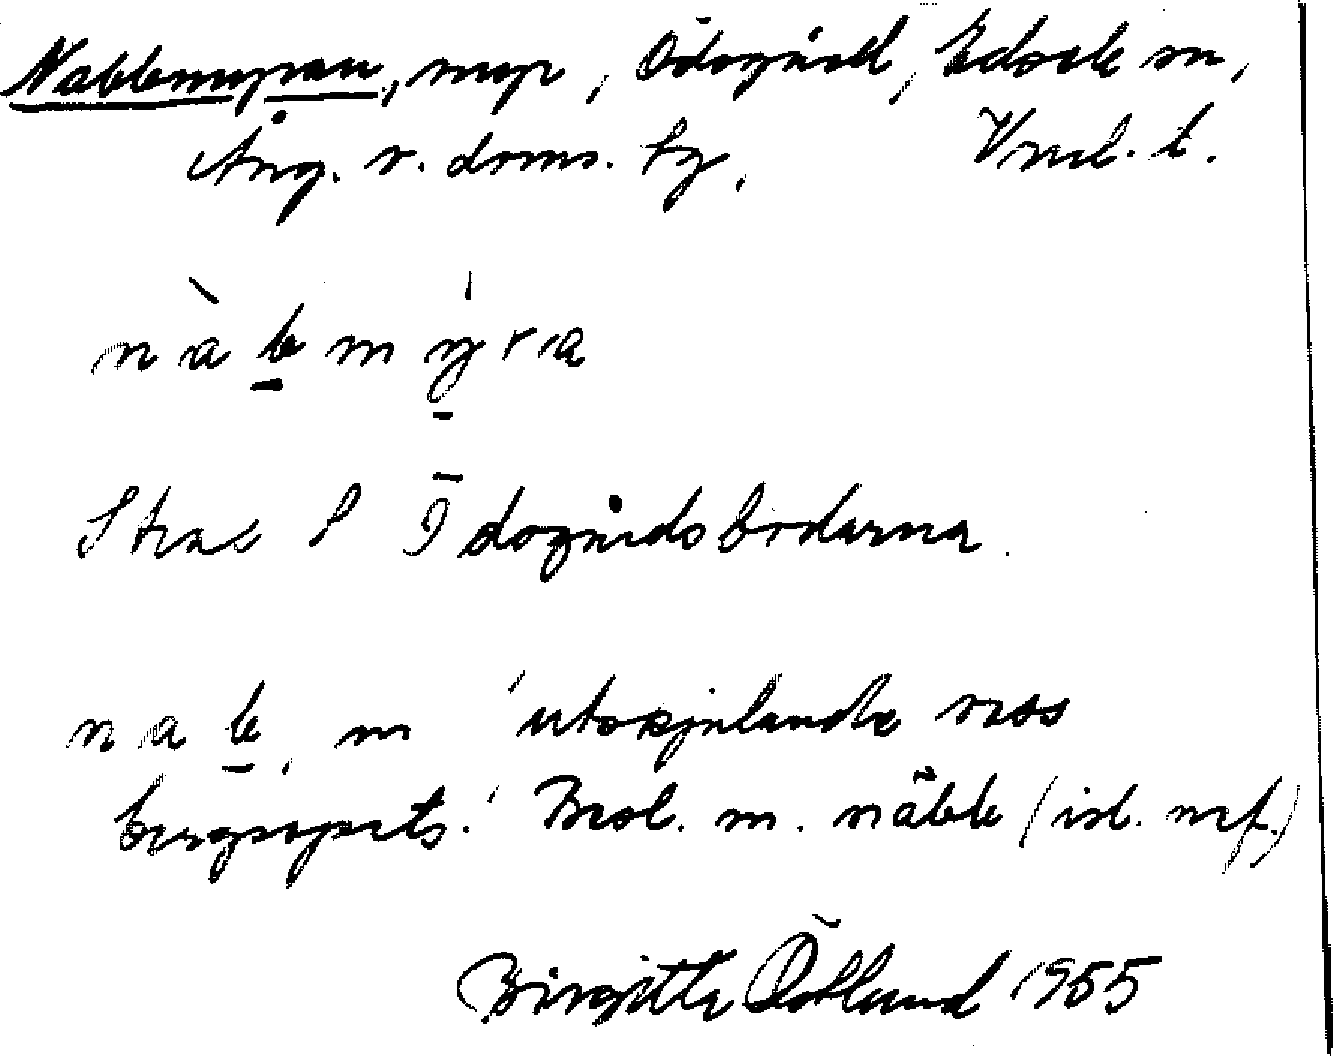 Nabbemyran, myr, Ödsgård, Edsele sn,
Ång. v. doms. tg, Vnl. l.
nàbmýra
Strax S Ödsgårdsbodarna.
nab, m 'utskjutande
bergsspets.' Besl. m. näbb (isl. nef.)
Birgitta Östlund 1955